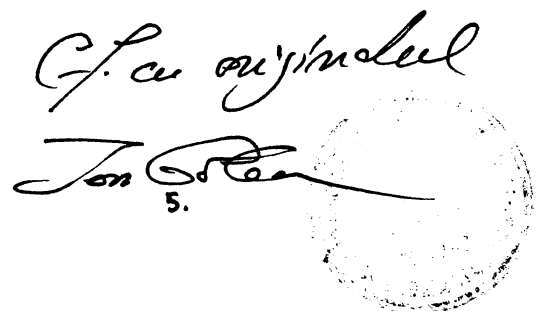 Cf. cu originalul
Ion
5.